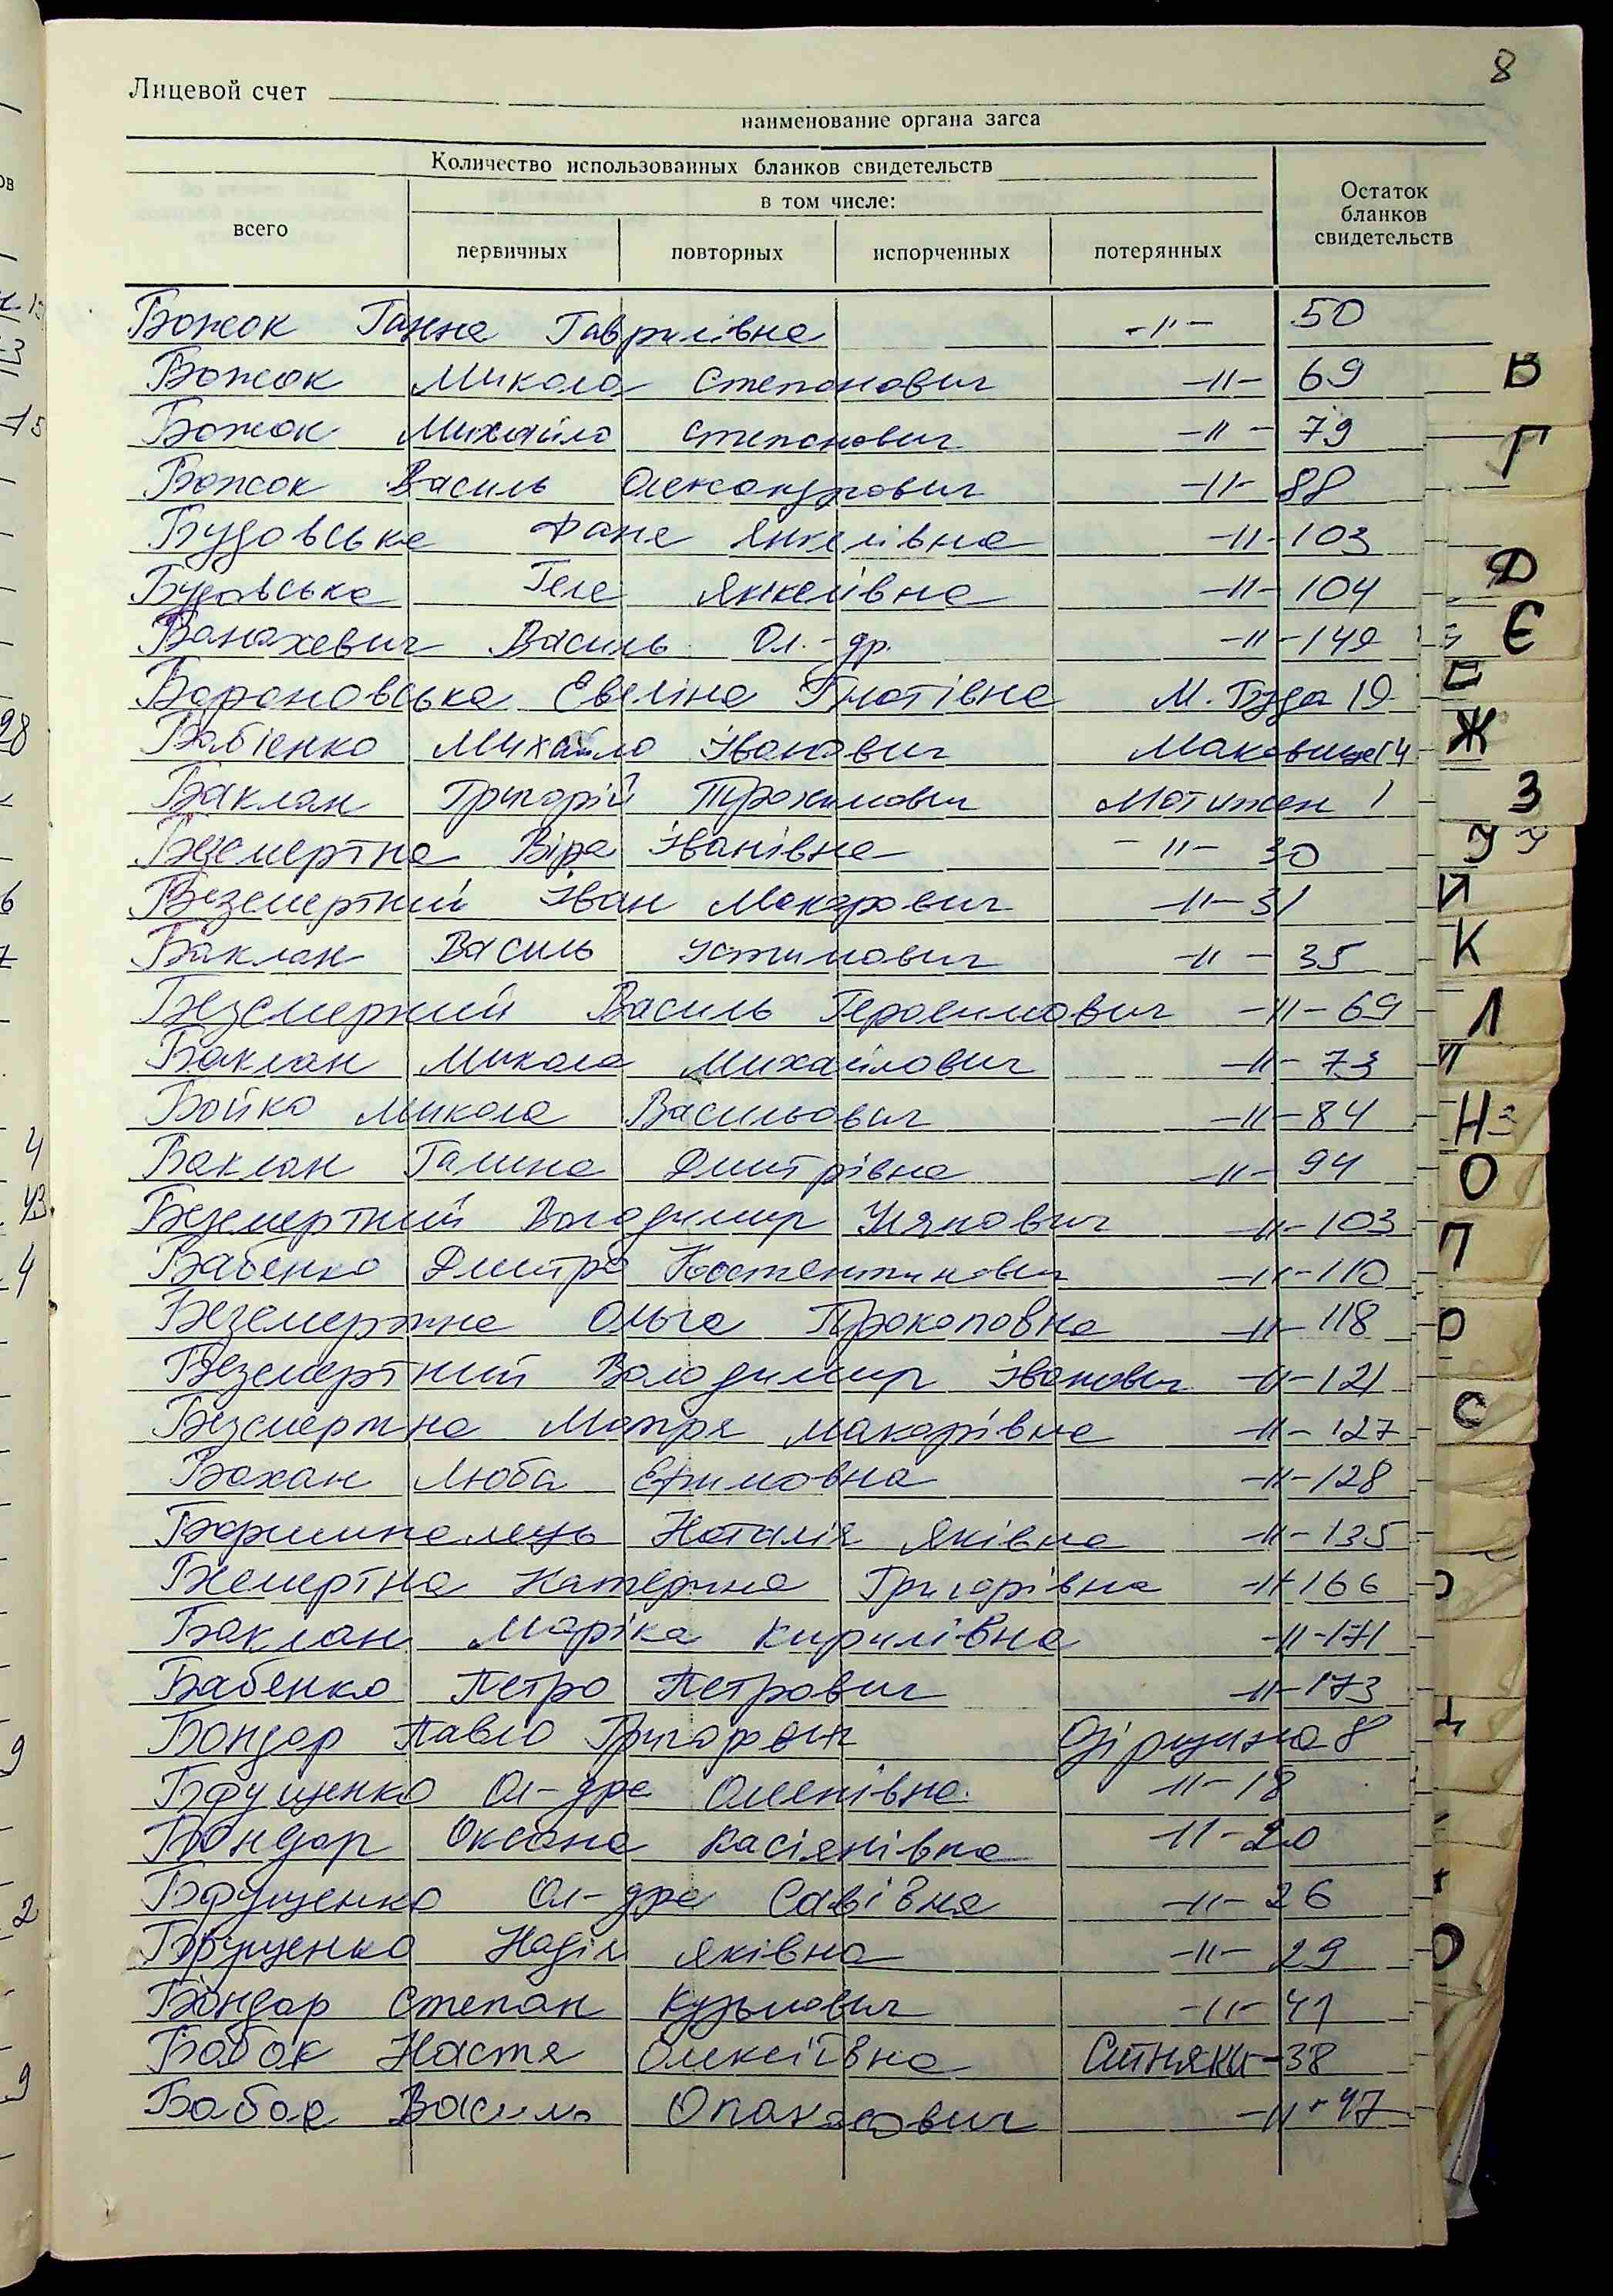 8
Лицевой счет
наименование органа загса
Количество использованных бланков свидетельств
Остаток бланков свидетельств
всего
в том числе:
первичных повторных испорченных потерянных
Божок Ганна Гаврилівна -"- 50
Божок Микола Степанович -"- 69
Божок Михайло Степанович -"- 79
Божок Василь Олександрович -"- 88
Будовська Фаня Янкелівна -"- 103
Будовська Геля Янкелівна -"- 104
Банахевич Василь Ол.-др. -"- 149
Барановська Евеліна Гнатівна М. Буда 19
Бабієнко Михайло Іванович Маковище 14
Баклан Григорій Трохимович Мотижен 1
Безсмертна Віра Іванівна -"- 30
Безсмертний Іван Макарович -"- 31
Баклан Василь Устимович -"- 35
Безсмертний Василь Герасимович -"- 69
Баклан Микола Михайлович -"- 73
Бойко Микола Васильович -"- 84
Баклан Галина Дмитрівна -"- 94
Безсмертний Володимир -"- 103
Бабенко Дмитро Костянтинович -"- 110
Безсмертна Ольга Прокоповна -"- 118
Безсмертний Володимир Іванович -"- 121
Безсмертна Мотря Макарівна -"- 127
Бохан Люба -"- 128
Наталія Яківна -"- 135
Катерина Григорівна -"- 166
Баклан Марійка Кирилівна -"- 171
Бабенко Петро Петрович -"- 173
Бондар Павло Григорович 8
Ол-дра -"- 18
Бондар Оксана Касіянівна -"- 20
Ол-дра Савівна -"- 26
Надія Яківна -"- 29
Бондар Степан Кузьмович -"- 41
Бабок Настя Олексіївна Ситняки-38
Бабак Василь Опанасович -"- 47
В
Г
Д
Є
Ж
З
И
К
Л
Н
О
П
Р
С